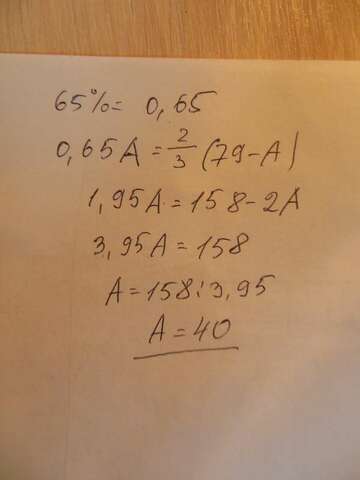 65%= 0,65
0,65A = 2/3 (79-A)
1,95A = 158-2A
3,95A = 158
A = 158:3,95
A = 40